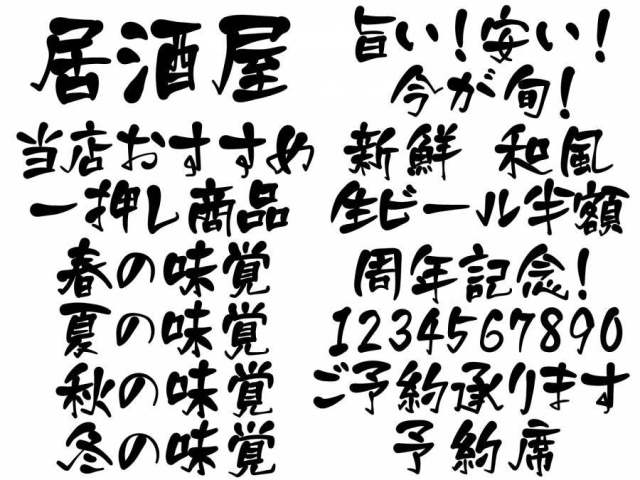 居酒屋
当店おすすめ
一押し商品
春の味覚
夏の味覚
秋の味覚
冬の味覚
旨い!安い!
今が旬!
新鮮 和風
生ビール半額
周年記念!
1234567890
ご予約承ります
予約席